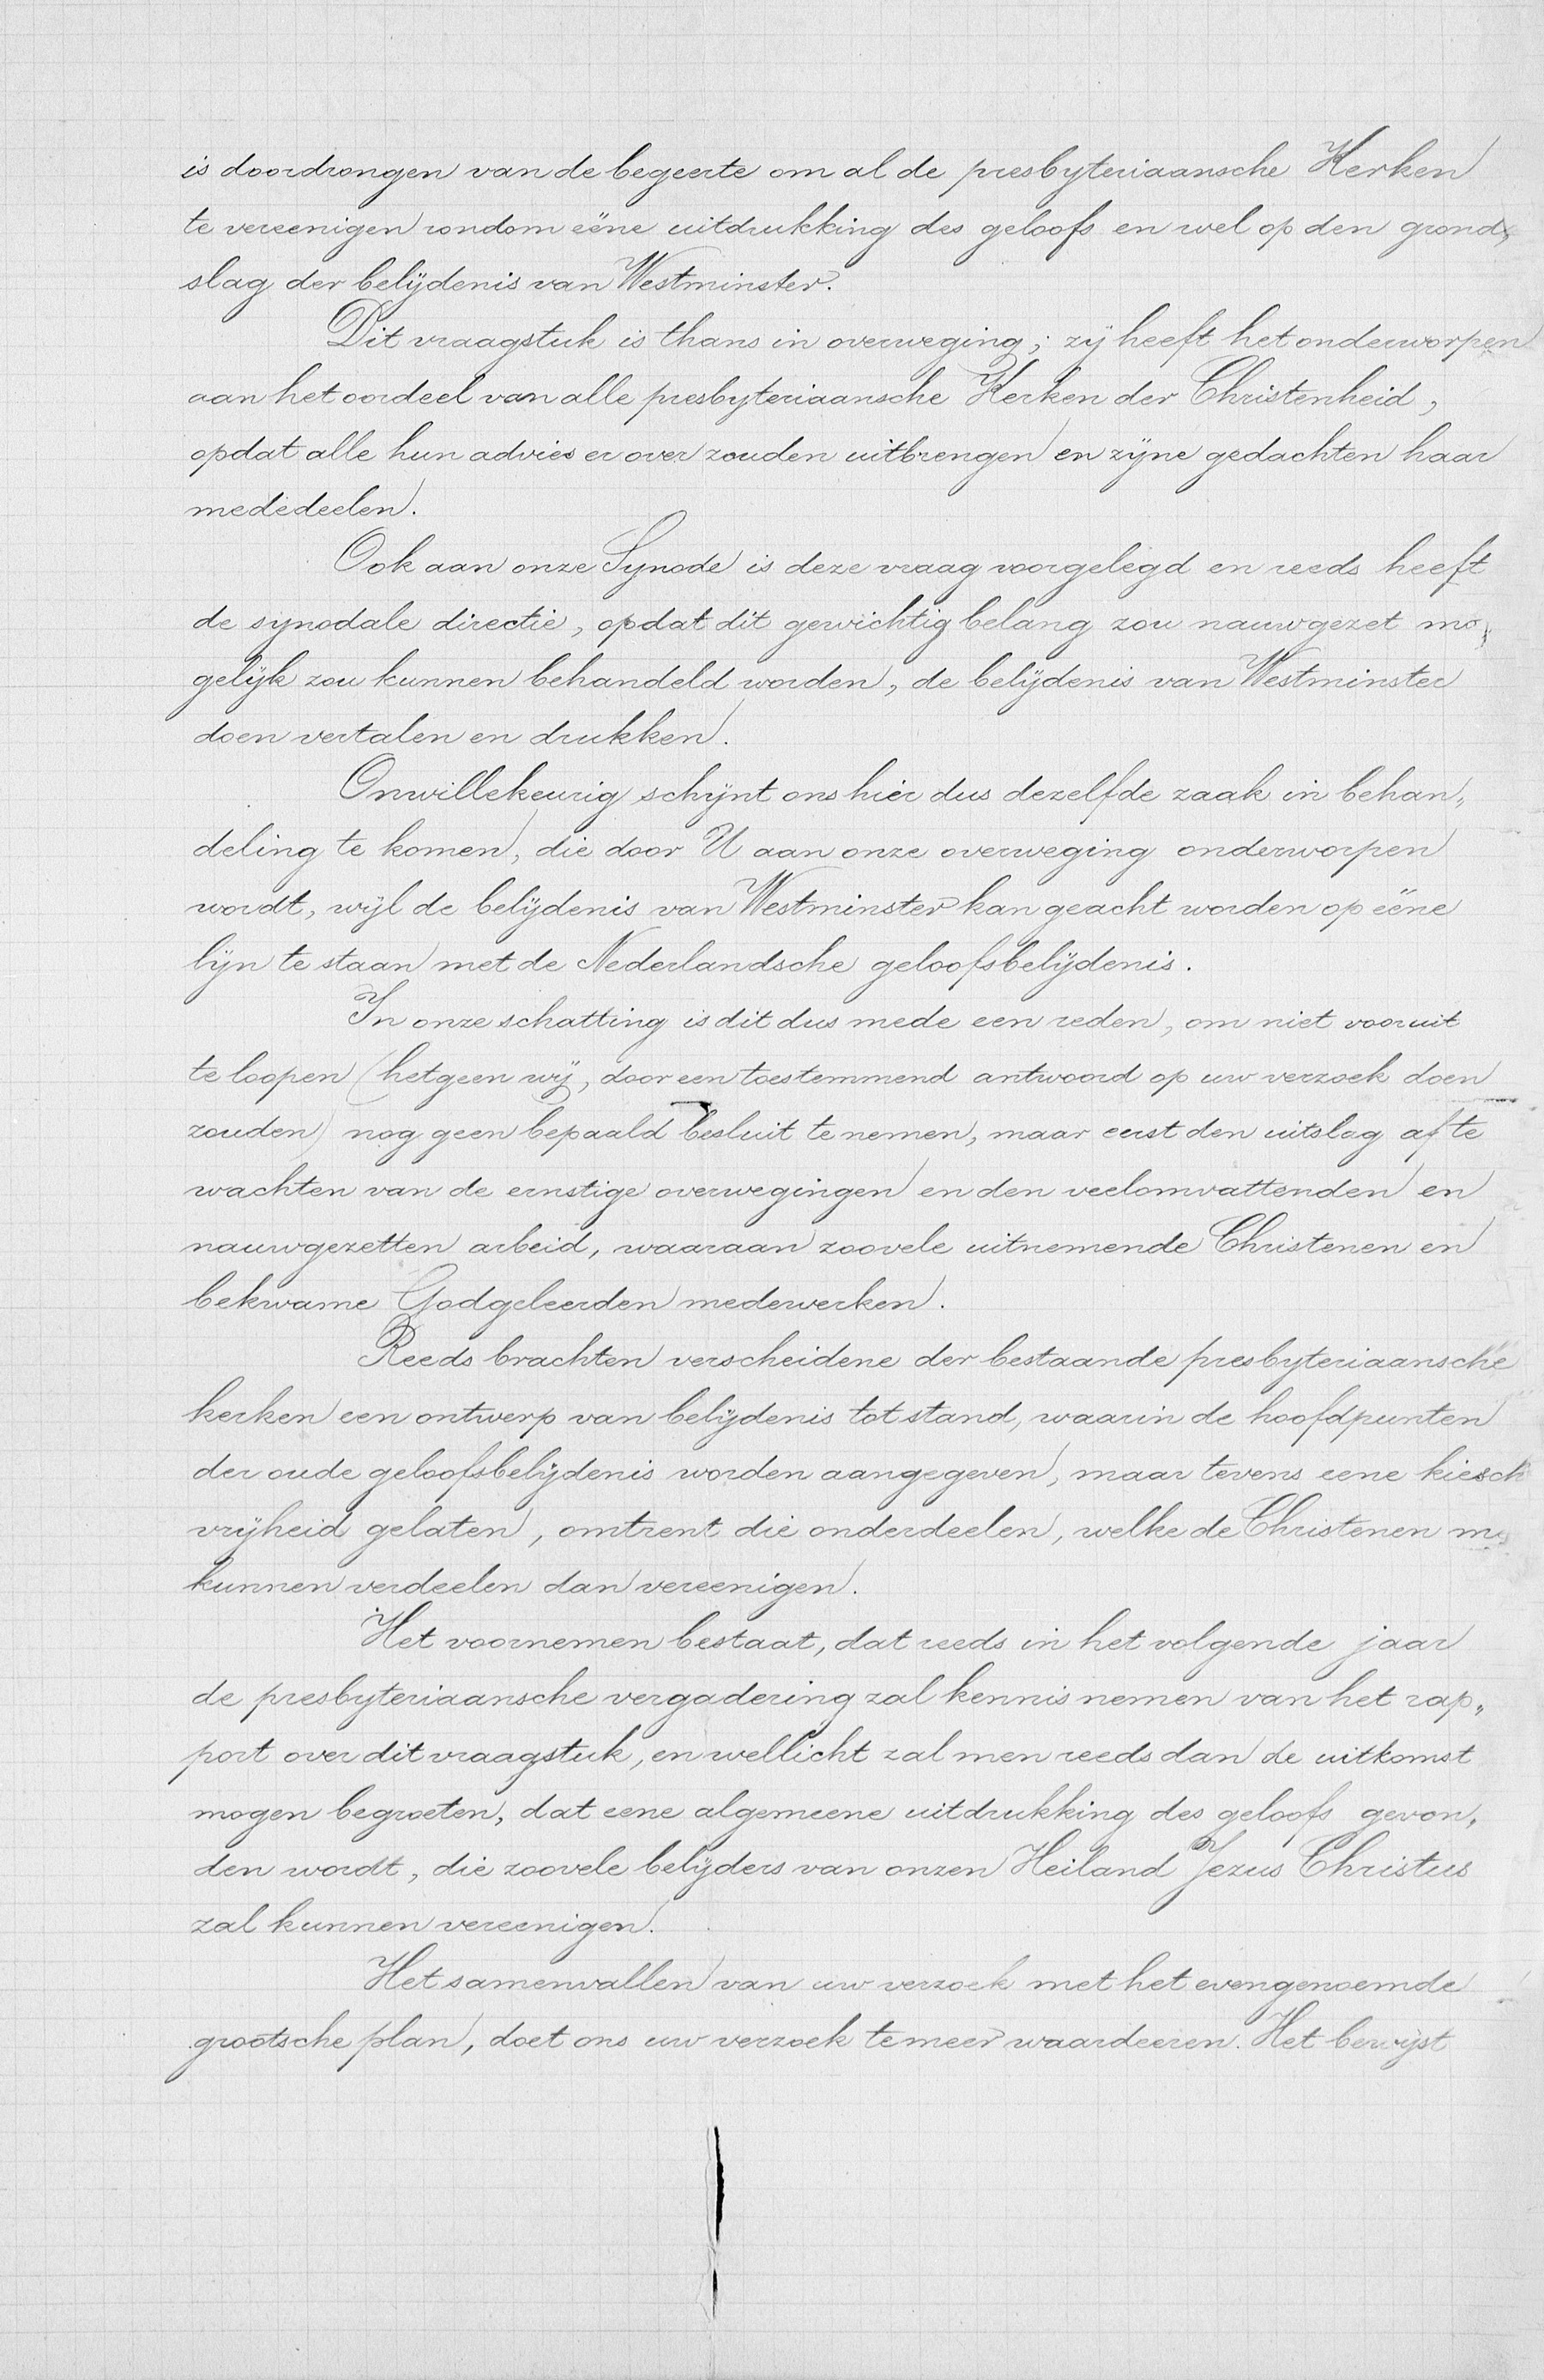 is doordrongen van de begeerte om al de presbyteriaansche Kerken
te vereenigen rondom ééne uitdrukking des geloofs en wel op den grond„
slag der belijdenis van Westminster.
Dit vraagstuk is thans in overweging; zij heeft het onderworpen
aan het oordeel van alle presbyteriaansche Kerken der Christenheid,
opdat alle hun advies er over zouden uitbrengen en zijne gedachten haar
mededeelen.
Ook aan onze Synode is deze vraag voorgelegd en reeds heeft
de synodale directie, opdat dit gewichtig belang zou nauwgezet mo„
gelijk zou kunnen behandeld worden, de belijdenis van Westminster
doen vertalen en drukken.
Onwillekeurig schijnt ons hier dus dezelfde zaak in behan„
deling te komen, die door U aan onze overweging onderworpen
wordt, wijl de belijdenis van Westminster kan geacht worden op ééne
lijn te staan met de Nederlandsche geloofsbelijdenis.
In onze schatting is dit dus mede een reden, om niet vooruit
te loopen (hetgeen wij, door een toestemmend antwoord op uw verzoek doen
zouden) nog geen bepaald besluit te nemen, maar eerst den uitslag af te
wachten van de ernstige overwegingen en den veelomvattenden en
nauwgezetten arbeid, waaraan zoovele uitnemende Christenen en
bekwame Godgeleerden medewerken.
Reeds brachten verscheidene der bestaande presbyteriaansche
kerken een ontwerp van belijdenis tot stand, waarin de hoofdpunten
der oude geloofsbelijdenis worden aangegeven, maar tevens eene kiesch
vrijheid gelaten, omtrent die onderdeelen, welke de Christenen
kunnen verdeelen dan vereenigen.
Het voornemen bestaat, dat reeds in het volgende jaar
de presbyteriaansche vergadering zal kennis nemen van het rap„
port over dit vraagstuk, en wellicht zal men reeds dan de uitkomst
mogen begroeten, dat eene algemeene uitdrukking des geloofs gevon„
den wordt, die zoovele belijders van onzen Heiland Jezus Christus
zal kunnen vereenigen.
Het samenvallen van uw verzoek met het evengenoemde
grootsche plan, doet ons uw verzoek temeer waardeeren. Het bewijst